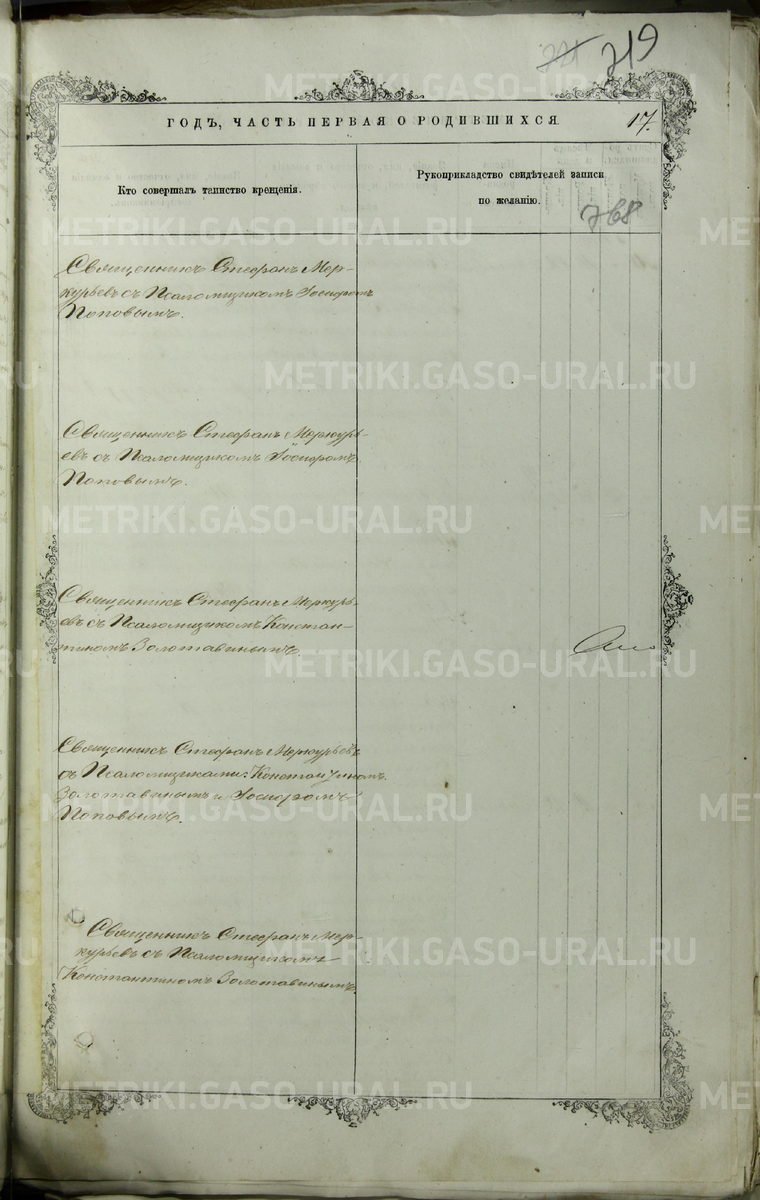 719
ГОДЪ, ЧАСТЬ ПЕРВАЯ О РОДИВШИХСЯ
17.
Кто совершалъ таинство крещенія.
Рукоприкладство свидѣтелей записи
по желанію.
768
Священникъ Стефанъ Мер-
курьевъ съ Псаломщикомъ Іосифомъ
Поповымъ.
Священникъ Стефанъ Меркурь-
евъ съ Псаломщикомъ Іосифомъ
Поповымъ.
Священникъ Стефанъ Меркурь-
евъ съ Псаломщикомъ Констан-
тиномъ Золотавинымъ.
Священникъ Стефанъ Меркурьевъ
съ Псаломщиками: Константиномъ
Золотавинымъ и Іосифомъ
Поповымъ.
Священникъ Стефанъ Мер-
курьевъ съ Псаломщикомъ
Константиномъ Золотавинымъ.
METRIKI.GASO-URAL.RU